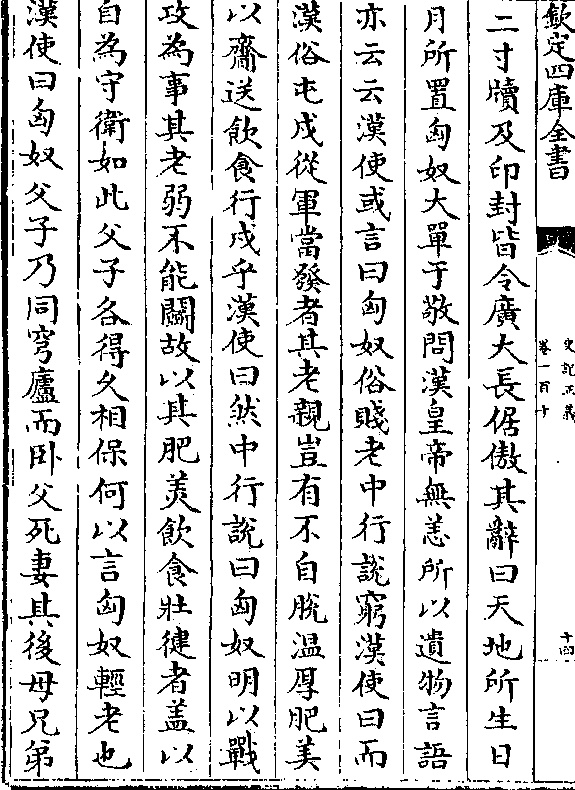 欽定四庫全書
史記正義
卷一百十
十四
二寸牘及印封皆令廣大長倨傲其辭曰天地所生日
月所置匈奴大單于敬問漢皇帝無恙所以遺物言語
亦云云漢使或言曰匈奴俗賤老中行說窮漢使曰而
漢俗屯戍從軍當發者其老親豈有不自脫溫厚肥美
以齎送飲食行戍乎漢使曰然中行說曰匈奴明以戰
攻為事其老弱不能鬬故以其肥美飲食壯徤者盖以
自為守衛如此父子各得久相保何以言匈奴輕老也
漢使曰匈奴父子乃同穹廬而卧父死妻其後母兄弟